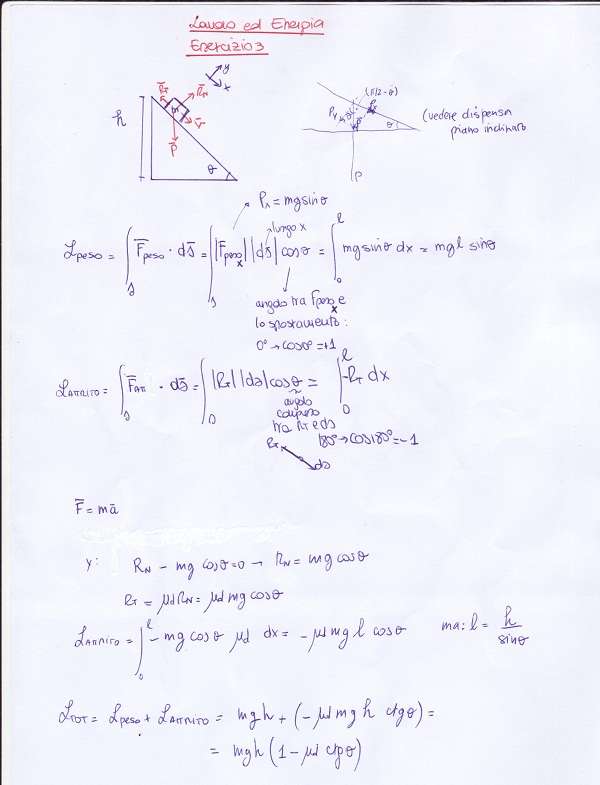 Lavoro ed Energia
Esercizio 3
y
x
R_T
R_N
m
v
P
h
θ
(π/2 - θ)
P_x
P_y
θ
P
(vedere dispensa
piano inclinato
P_x = mg sinθ
lungo x
L_PESO = ∫_s F_peso · ds = ∫_s |F_peso x| |ds| cosθ = ∫_0^l mg sinθ dx = mgl sinθ
angolo tra F_peso x e
lo spostamento:
0° → cos0° = +1
L_ATTRITO = ∫_s F_ATT · ds = ∫_0 |R_T| |ds| cosθ = ∫_0^l -R_T dx
angolo
compreso
tra R_T e ds
180° → cos180° = -1
R_T
ds
F = ma
y: R_N - mg cosθ = 0 → R_N = mg cosθ
R_T = μd R_N = μd mg cosθ
L_ATTRITO = ∫_0^l -mg cosθ μd dx = -μd mg l cosθ ma: l = h/sinθ
L_TOT = L_peso + L_ATTRITO = mgh + (-μd mg h ctgθ) =
= mgh (1 - μd ctgθ)